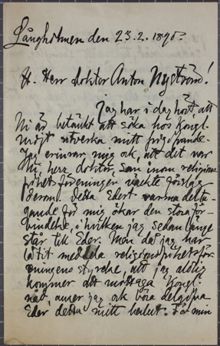 Långholmen den 23.2.1895.
H. Herr doktor Anton Nyström!
Jag har i dag hört, att
Ni är betänkt att söka hos Kongl.
Maj:t utverka mitt frigifvande.
Jag erinrar mig ock, att det var
Ni, herr doktor, som inom religions
frihets föreningen väckte förslag
derom. Detta Edert varma delta-
gande för mig ökar den stora för
bindelse, i hvilken jag sedan länge
står till Eder. Men då jag har
låtit meddela religionsfrihetsför
eningens styrelse, att jag aldrig
kommer att mottaga Kongl.
nåd, anser jag ock böra delgifva
Eder detta mitt beslut. På min